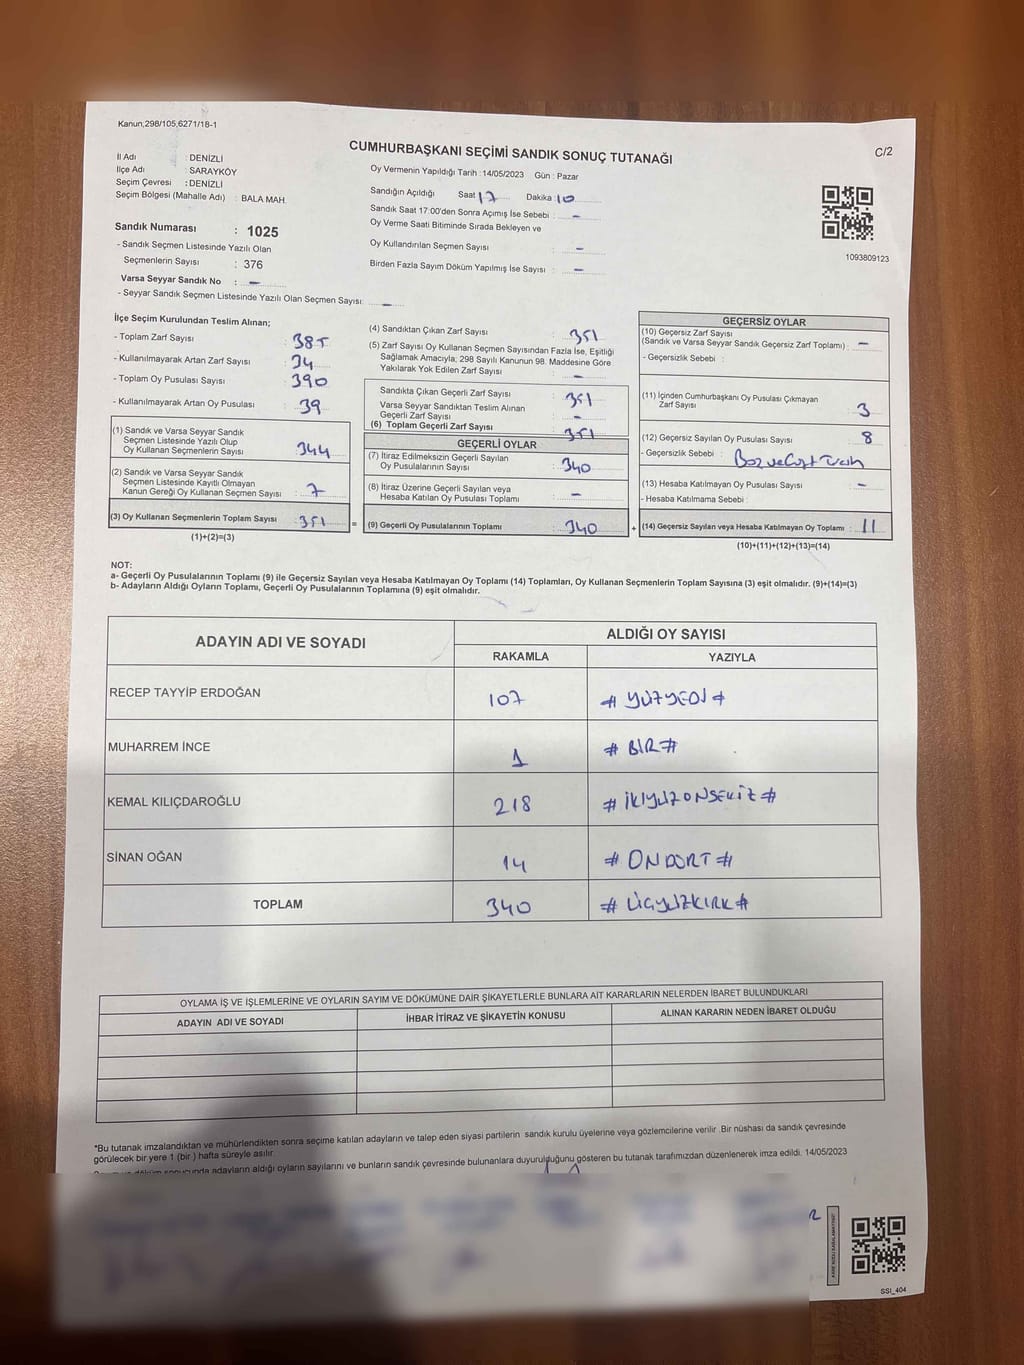 Kanun;298/105,6271/18-1
CUMHURBAŞKANI SEÇİMİ SANDIK SONUÇ TUTANAĞI
C/2
İl Adı : DENİZLİ
İlçe Adı : SARAYKÖY
Seçim Çevresi : DENİZLİ
Seçim Bölgesi (Mahalle Adı) : BALA MAH.
Oy Vermenin Yapıldığı Tarih : 14/05/2023 Gün : Pazar
Sandığın Açıldığı Saat 17 Dakika 10
Sandık Saat 17:00'den Sonra Açımış İse Sebebi : -
Oy Verme Saati Bitiminde Sırada Bekleyen ve
Oy Kullandırılan Seçmen Sayısı : -
Birden Fazla Sayım Döküm Yapılmış İse Sayısı : -
1093809123
Sandık Numarası : 1025
- Sandık Seçmen Listesinde Yazılı Olan
Seçmenlerin Sayısı : 376
Varsa Seyyar Sandık No : -
- Seyyar Sandık Seçmen Listesinde Yazılı Olan Seçmen Sayısı: -
İlçe Seçim Kurulundan Teslim Alınan;
- Toplam Zarf Sayısı : 385
- Kullanılmayarak Artan Zarf Sayısı : 34
- Toplam Oy Pusulası Sayısı : 390
- Kullanılmayarak Artan Oy Pusulası : 39
(1) Sandık ve Varsa Seyyar Sandık
Seçmen Listesinde Yazılı Olup
Oy Kullanan Seçmenlerin Sayısı : 344
(2) Sandık ve Varsa Seyyar Sandık
Seçmen Listesinde Kayıtlı Olmayan
Kanun Gereği Oy Kullanan Seçmen Sayısı : 7
(3) Oy Kullanan Seçmenlerin Toplam Sayısı : 351
(1)+(2)=(3)
(4) Sandıktan Çıkan Zarf Sayısı : 351
(5) Zarf Sayısı Oy Kullanan Seçmen Sayısından Fazla İse, Eşitliği
Sağlamak Amacıyla; 298 Sayılı Kanunun 98. Maddesine Göre
Yakılarak Yok Edilen Zarf Sayısı : -
Sandıkta Çıkan Geçerli Zarf Sayısı : 351
Varsa Seyyar Sandıktan Teslim Alınan
Geçerli Zarf Sayısı : -
(6) Toplam Geçerli Zarf Sayısı : 351
GEÇERLİ OYLAR
(7) İtiraz Edilmeksizin Geçerli Sayılan
Oy Pusulalarının Sayısı : 340
(8) İtiraz Üzerine Geçerli Sayılan veya
Hesaba Katılan Oy Pusulası Toplamı : -
= (9) Geçerli Oy Pusulalarının Toplamı : 340
GEÇERSİZ OYLAR
(10) Geçersiz Zarf Sayısı
(Sandık ve Varsa Seyyar Sandık Geçersiz Zarf Toplamı) : -
- Geçersizlik Sebebi :
(11) İçinden Cumhurbaşkanı Oy Pusulası Çıkmayan
Zarf Sayısı : 3
(12) Geçersiz Sayılan Oy Pusulası Sayısı : 8
- Geçersizlik Sebebi :
(13) Hesaba Katılmayan Oy Pusulası Sayısı : -
- Hesaba Katılmama Sebebi :
+ (14) Geçersiz Sayılan veya Hesaba Katılmayan Oy Toplamı : 11
(10)+(11)+(12)+(13)=(14)
NOT:
a- Geçerli Oy Pusulalarının Toplamı (9) ile Geçersiz Sayılan veya Hesaba Katılmayan Oy Toplamı (14) Toplamları, Oy Kullanan Seçmenlerin Toplam Sayısına (3) eşit olmalıdır. (9)+(14)=(3)
b- Adayların Aldığı Oyların Toplamı, Geçerli Oy Pusulalarının Toplamına (9) eşit olmalıdır.
ADAYIN ADI VE SOYADI
ALDIĞI OY SAYISI
RAKAMLA YAZIYLA
RECEP TAYYİP ERDOĞAN 107 # YÜZYEDİ #
MUHARREM İNCE 1 # BİR #
KEMAL KILIÇDAROĞLU 218 # İKİYÜZONSEKİZ #
SİNAN OĞAN 14 # ONDÖRT #
TOPLAM 340 # ÜÇYÜZKIRK #
OYLAMA İŞ VE İŞLEMLERİNE VE OYLARIN SAYIM VE DÖKÜMÜNE DAİR ŞİKAYETLERLE BUNLARA AİT KARARLARIN NELERDEN İBARET BULUNDUKLARI
ADAYIN ADI VE SOYADI İHBAR İTİRAZ VE ŞİKAYETİN KONUSU ALINAN KARARIN NEDEN İBARET OLDUĞU
*Bu tutanak imzalandıktan ve mühürlendikten sonra seçime katılan adayların ve talep eden siyasi partilerin sandık kurulu üyelerine veya gözlemcilerine verilir .Bir nüshası da sandık çevresinde
görülecek bir yere 1 (bir ) hafta süreyle asılır.
döküm sonucunda adayların aldığı oyların sayılarını ve bunların sandık çevresinde bulunanlara duyurulduğunu gösteren bu tutanak tarafımızdan düzenlenerek imza edildi. 14/05/2023
SSI_404